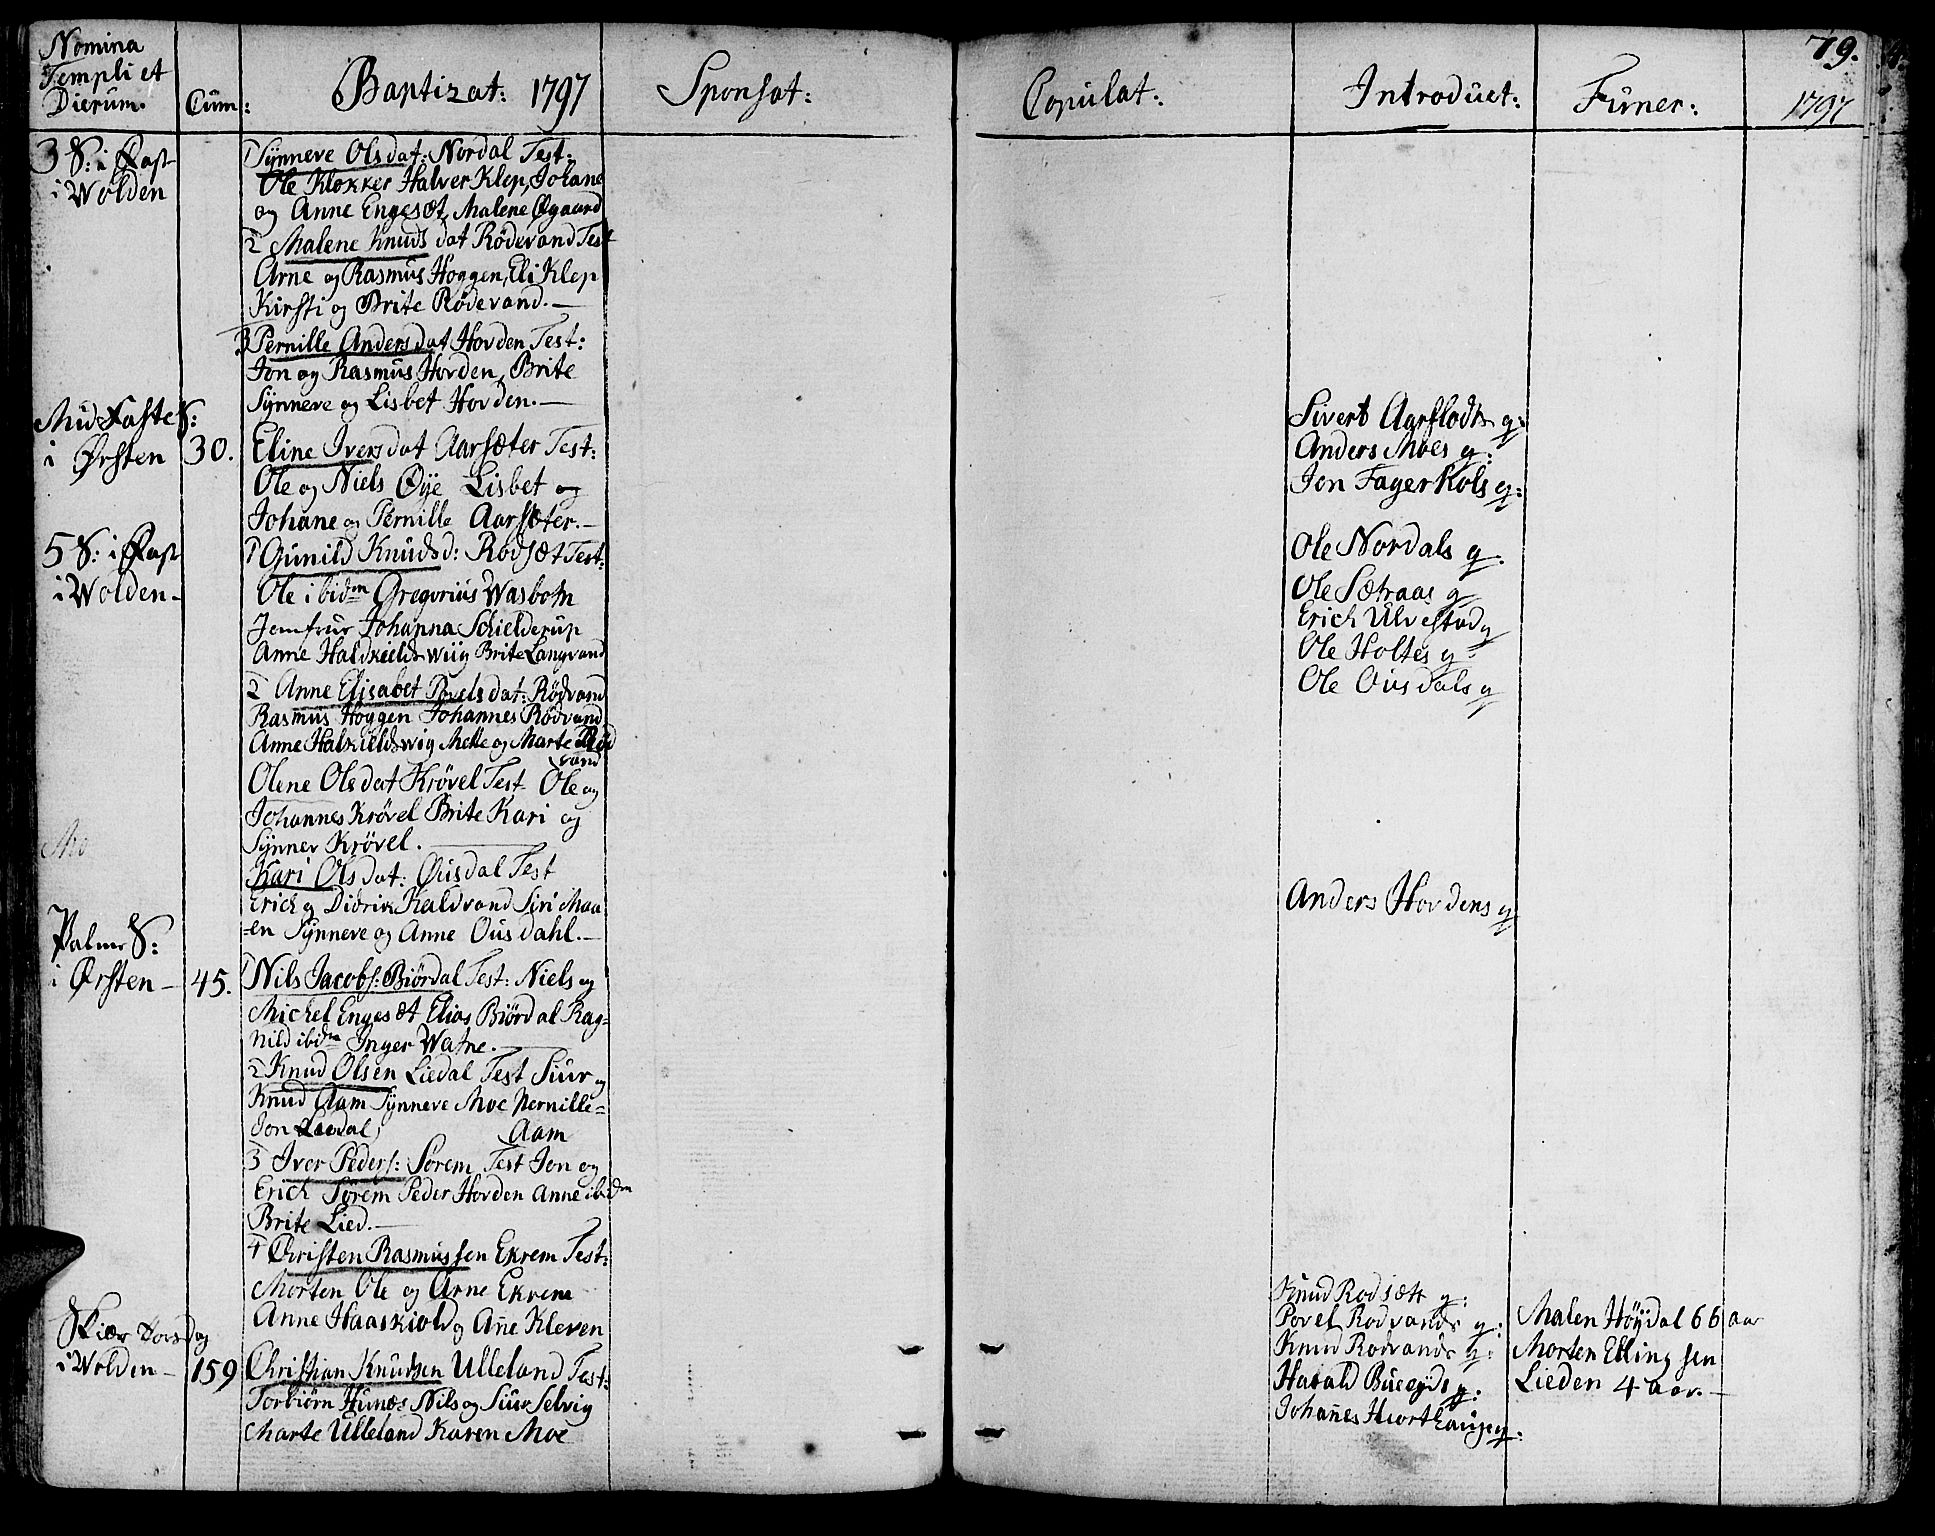 Nomina
Templi et
Dierum.
Cum:
Baptizat: 1797
Sponsat:
Copulat:
Introduct:
Funer:
79.
1797
3 S: i Fast
i Wolden
1 Synneve Olsdat: Nordal Test:
Ole Klokker Halver Klep, Johane
og Anne Engesæt, Malene Øgaard
2 Malene Knuds dat Rødevand Test
Arne og Rasmus Hoggen, Eli Klep
Kirsti og Brite Rødevand.—
3 Pernille Anders dat Hovden Test:
Jon og Rasmus Hovden, Brite
Synneve og Lisbet Hovden.—
Mid Faste S:
i Ørsten 30.
Eline Ivers dat Aarsæter Test:
Ole og Niels Øye Lisbet og
Johane og Pernille Aarsæter.—
5 S: i Fast
i Wolden—
1 Gunild Knudsd: Rodsæt Test:
Ole ibidm Gregorius Wasbotn
Jomfrur Johanna Schielderup
Anne Haldkields wiig Brite Langvand
2 Anne Elisabet Povels dat: Rødvand
Rasmus Hoggen Johannes Rødvand
Anne Halkieldswig Mette og Marte Rød
vand
Olene Olsdat Krøvel Test Ole og
Johannes Krøvel Brite Kari og
Synnev Krøvel.—
Kari Olsdat: Ousdal Test
Erich og Didrik Kaldvand Siri Maa
-en Synneve og Anne Ousdahl.—
Palme S:
i Ørsten— 45.
1 Nils Jacobs: Biørdal Test: Niels og
Michel Engesæt Elias Biørdal Rag-
nild ibidm Inger Watne.—
2 Knud Olsen Liedal Test Siur og
Knud Aam Synneve Moe Pernille=
Jon Liedal) (Aam
3 Iver Peders: Sørem Test Jon og
Erich Sørem Peder Hovden Anne ibidm
Brite Lied.—
4 Christen Rasmussen Ekrem Test:
Morten Ole og Arne Ekrem
Anne Haaskiold og Añe Kleven
Skiær Torsdag
i Wolden— 159
Christian Knudsen Ulleland Test:
Torbiørn Hunes Nils og Siur Selvig
Marte Ulleland Karen Moe
Sivert Aarflodts q:
Anders Moes q:
Jon Fagerhols q:
Ole Nordals q.
Ole Sætraas q
Erich Ulvestad q
Ole Holtes q
Ole Ousdals q
Anders Hovdens q
Knud Rodsætt q:
Povel Rodvands q:
Knud Rodvands q:
Harald Bueeyds q:
Johañes Hiorthaugs q:
Malen Høydal 66 aar
Morten Elling sen
Lieden 4 aar.—